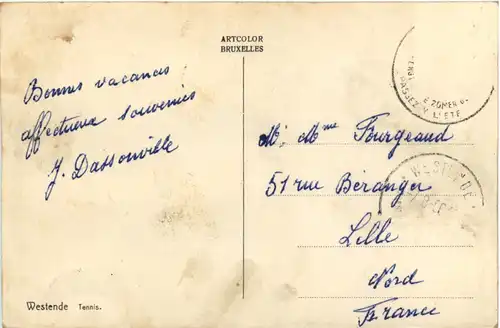 ARTCOLOR
BRUXELLES
Bonnes vacances
affectueux souvenirs
J. Dassonville
E ZOMER
PASSEZ L'ÉTÉ
M. Mme Fourgeaud
51 rue Béranger
Lille
Nord
France
WESTENDE
Westende Tennis.